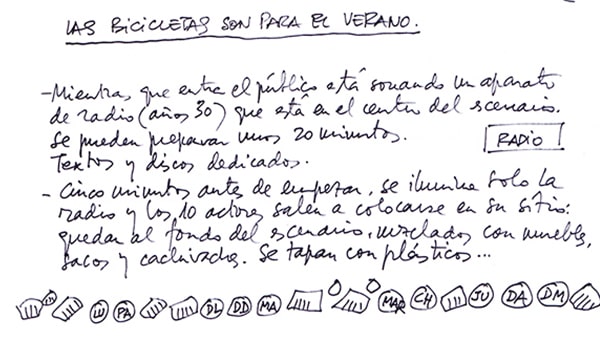 LAS BICICLETAS SON PARA EL VERANO.
-Mientras que entra el público está sonando un aparato
de radio (años 30) que está en el centro del scenario.
Se pueden preparar unos 20 minutos.
RADIO
Textos y discos dedicados.
- Cinco minutos antes de empezar, se ilumina solo la
radio y los 10 actores salen a colocarse en su sitio:
quedan al fondo del escenario, mezclados con muebles,
sacos y cachivaches. Se tapan con plásticos...
LU PA DL DD MA MAR CH JU DA DM